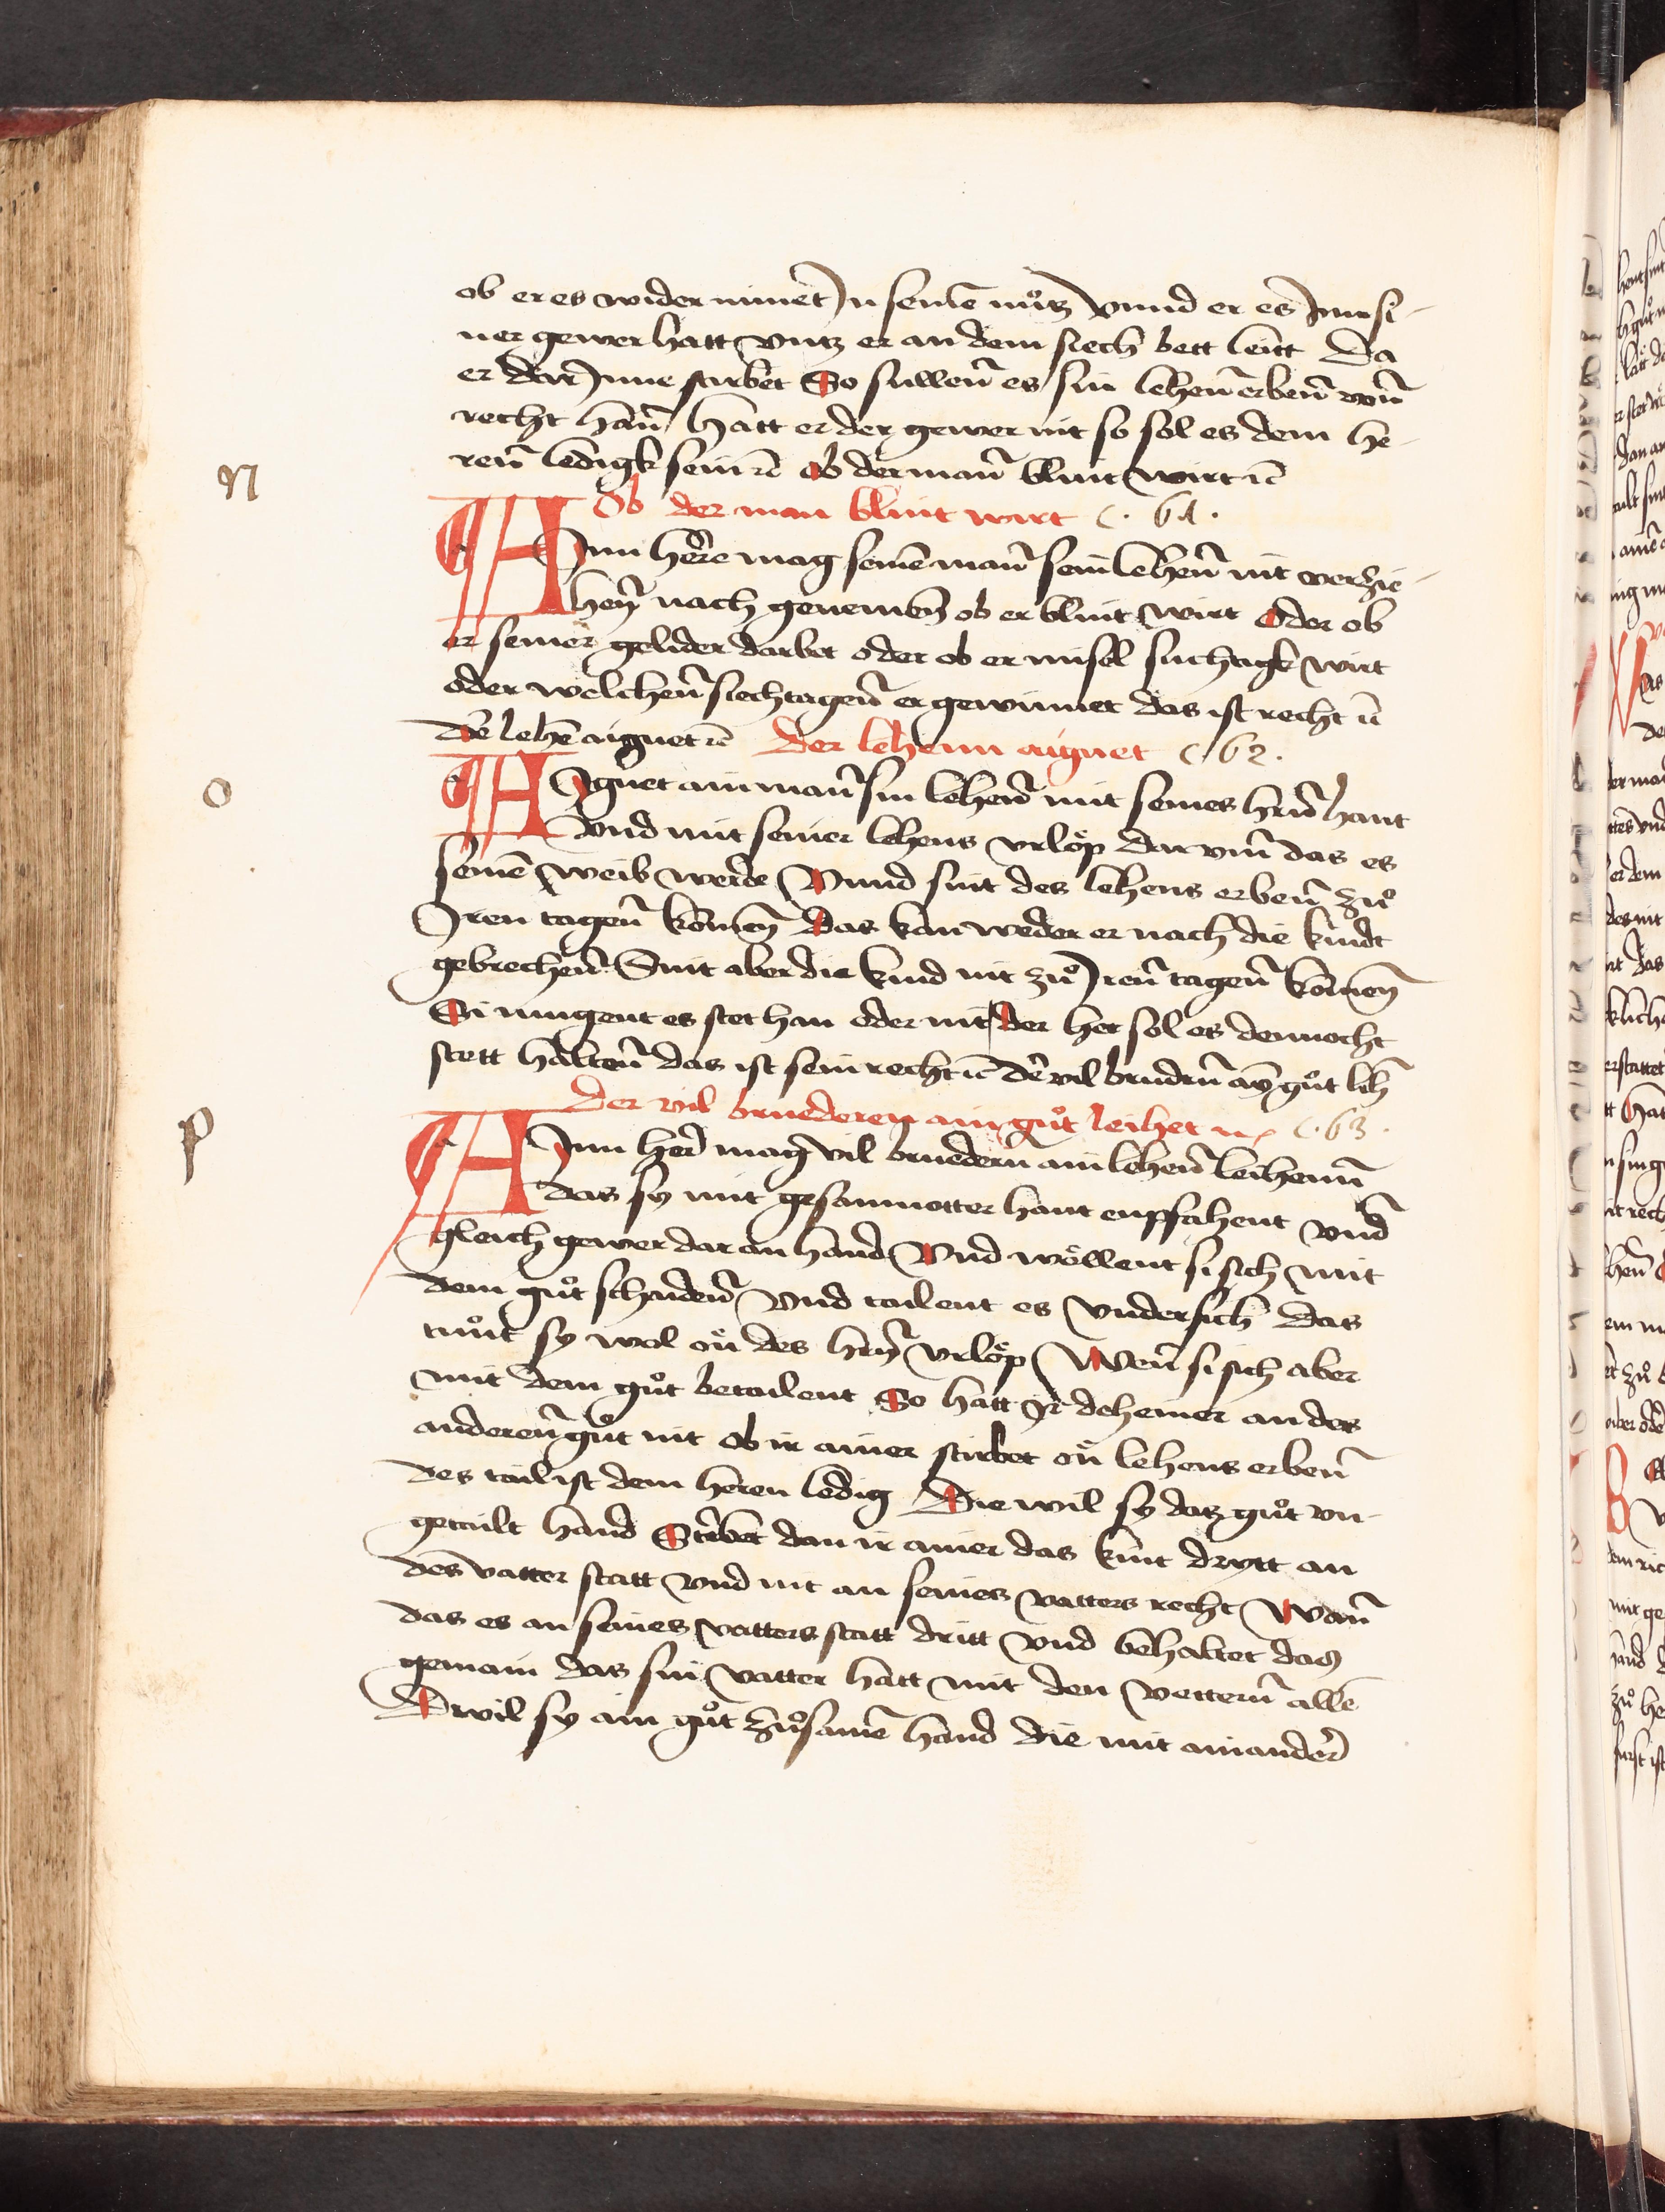 ob er es wider nimet Jn seinē nu̇tz vnnd er es Jnn si-
ner gewer hatt vntz er an dem siech bett leitt Da
er dar Jnne starbet So sullenn̄ es sin lehen̄ erben̄ von̄
recht han̄ Hatt er der gewer nit so sol es dem he-
ren̄ ledigk sein ꝛc̄ Ob der man̄ blint wirt ꝛc̄
n
Ob der man blint wirt C. 61.
AJnn here mag seinē man̄ sein lehen̄ nit verzie-
hen̄ nach genemen̄ ob er blint wirt Oder ob
er seiner gelider darbet oder ob er misel suchtigk wirt
oder welchen̄ siechtagen̄ er gewinnet das ist recht ꝛc̄
Dē lehē aignet ꝛc̄ Der lehenn aignet C. 62.
o
AJgnet ain man̄ sin lehen̄ mit seines hrn̄ hant
Vnd mit seiner lehens vrlöp dar vm̄ das es
seinē weib werde Vnnd sint des lehens erben̄ zů
Jren tagen̄ komen̄ Das kan weder er nach die kindt
gebrechen̄ Sint aber die kind nit zů Jren̄ tagen̄ komen̄
Si mugent es stet han oder nit Der her sol es dennocht
stett halten̄ das ist sein recht ꝛc̄ Dē vil brudrn̄ ay̅ gůt lih
Der vil bruederen ain gůt leihet ꝛc C. 63.
p
AJnn her mag vil bruedern̄ ain lehen̄ leihenn̄
das sy mit gesammotter hant enpfahent vnd
gleich gewer dar an hand Vnd wöllent si sich mit
dem gůt schaiden̄ Vnd tailent es vndersich Das
tuot sy wol on des hrn̄ vrlöp Wen̄ si sich aber
mit dem gůt betailent So hatt Jr deheiner an des
anderen̄ gůt nit ob ir ainer stirbet on lehens erben̄
des tail ist dem heren ledig Die wil sy daz gůt vn-
getailt hand Stirbet dan ir ainer das kint drytt an
des vatter statt vnd nit an seines vatters recht Wan̄
das es an seines vatters statt dritt vnd behaltet das
gemain das sin vatter hatt mit den vettern̄ allē
Dwil sy ain gůt zůsamē hand die mit ainander